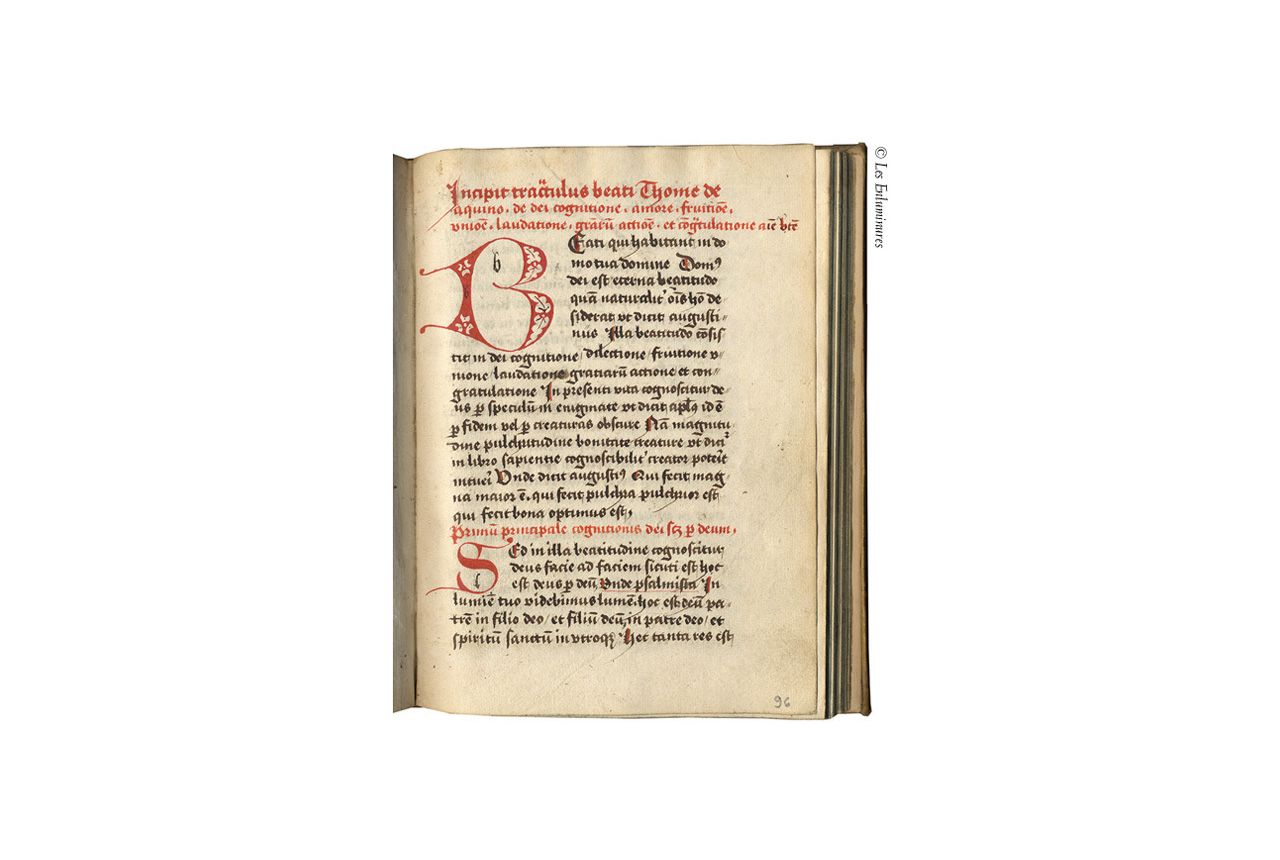 Incipit tractulus beati Thome de
aquino · de dei cognitione · amore · fruitiõe ·
vnioẽ · laudatione · grãrũ actiõe · et cõgtulatione aĩe bẽ
BEati qui habitant in do
mo tua domine Domꝰ
dei est eterna beatitudo
quã naturalit᷑ oĩs hõ de=
siderat vt dicit augusti=
nus Illa beatitudo cõsis
tit in dei cognitione / dilectione / fruitione v=
nione / laudatione gratiarũ actione et con=
gratulatione In presenti vita cognoscitur de=
us ꝑ speculũ in enigmate vt dicit apl̃ꝰ id ẽ
ꝑ fidem vel ꝑ creaturas obscure Nã magnitu
dine pulchritudine bonitate creature vt dicit᷑
in libro sapientie cognoscibilit᷑ creator poterit
intueri Vnde dicit augustiꝰ Qui fecit mag=
na maior ẽ · qui fecit pulchra pulchrior est
qui fecit bona optimus est ·
Primũ principale cognitionis dei scꝫ ꝑ deum ·
SEd in illa beatitudine cognoscitur
deus facie ad faciem sicuti est hoc
est deus ꝑ deũ Vnde psalmista In
lumiẽ tuo videbimus lumẽ · hoc est deũ pa=
trẽ in filio deo / et filiũ deũ in patre deo / et
spiritũ sanctũ in vtroqꝫ Hec tanta res est
96
© Les Enluminures